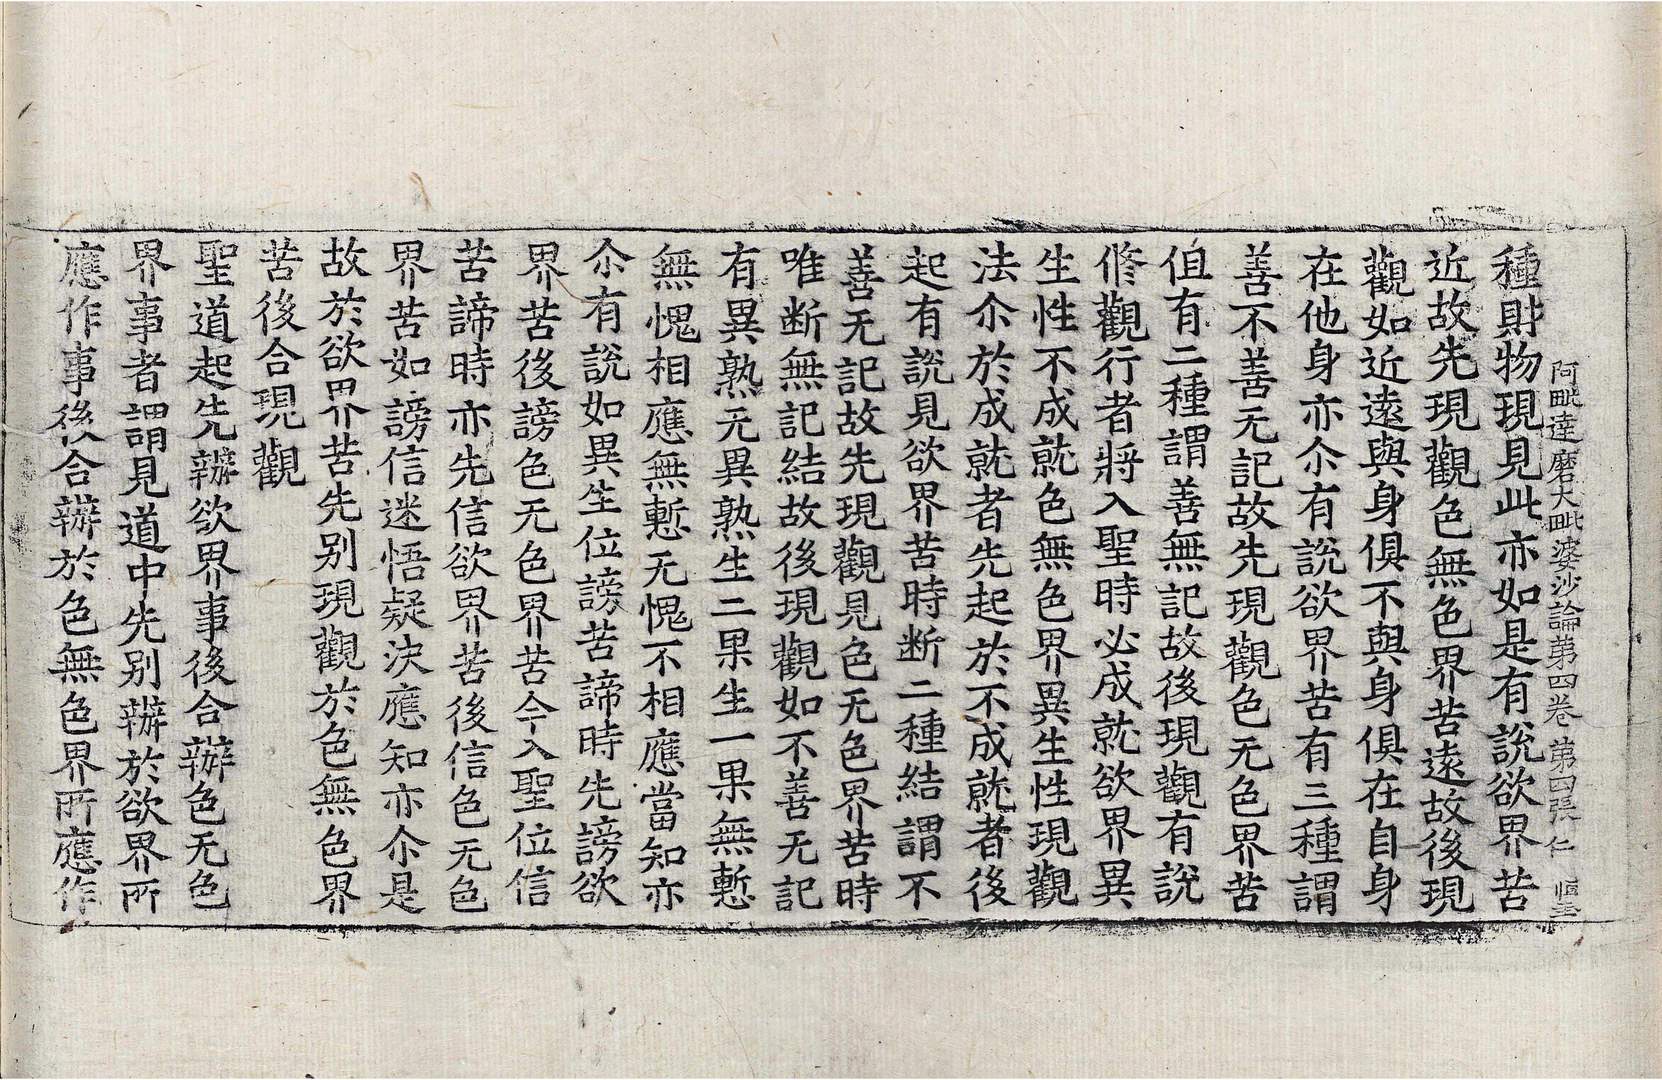 阿毗達磨大毗婆沙論第四卷 第四張 仁
種財物現見此亦如是有說欲界苦
近故先現觀色無色界苦遠故後現
觀如近遠與身俱不與身俱在自身
在他身亦尒有說欲界苦有三種謂
善不善无記故先現觀色无色界苦
但有二種謂善無記故後現觀有說
修觀行者將入聖時必成就欲界異
生性不成就色無色界異生性現觀
法尒於成就者先起於不成就者後
起有說見欲界苦時断二種結謂不
善无記故先現觀見色无色界苦時
唯断無記結故後現觀如不善无記
有異熟无異熟生二果生一果無慙
無愧相應無慙无愧不相應當知亦
尒有說如異生位謗苦諦時先謗欲
界苦後謗色无色界苦今入聖位信
苦諦時亦先信欲界苦後信色无色
界苦如謗信迷悟疑決應知亦尒是
故於欲界苦先別現觀於色無色界
苦後合現觀
聖道起先辦欲界事後合辦色无色
界事者謂見道中先別辦於欲界所
應作事後合辦於色無色界所應作